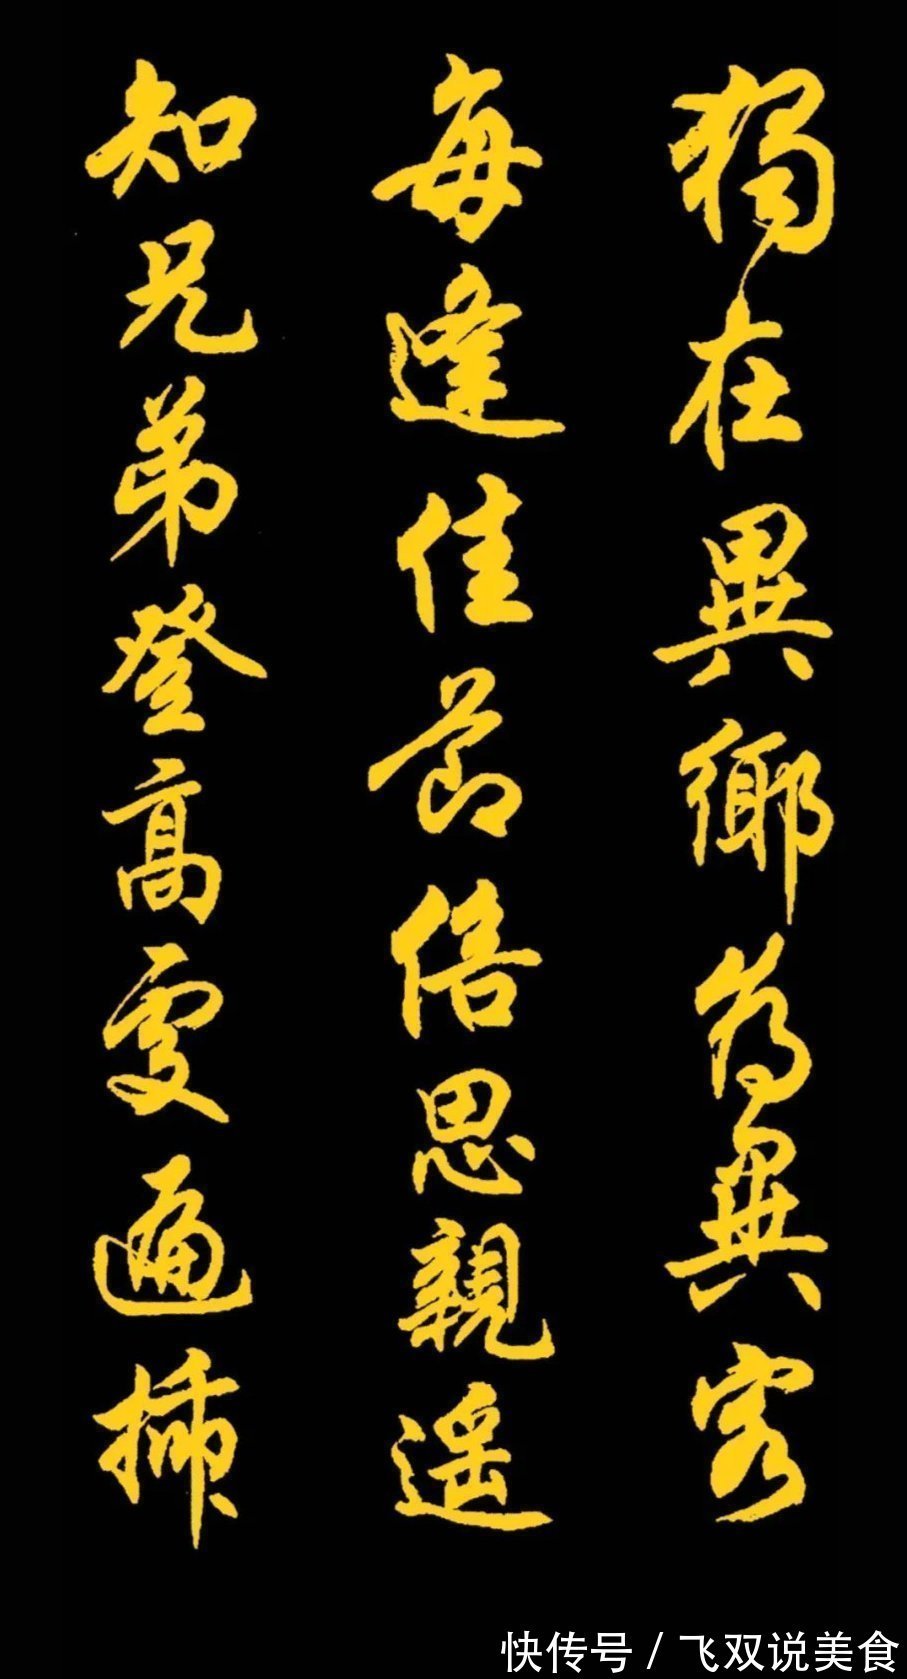 獨在異鄉為異客
每逢佳節倍思親遥
知兄弟登高處遍插
快传号/飞双说美食